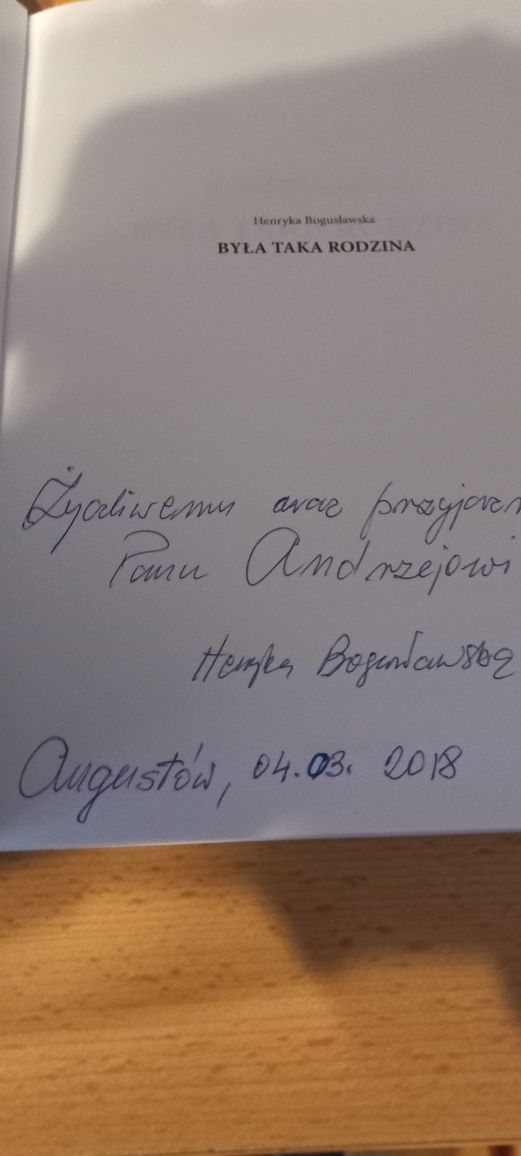 Henryka Bogusławska
BYŁA TAKA RODZINA
Życzliwemu oraz
Panu Andrzejowi
Henryka Bogusławska
Augustów, 04.03. 2018